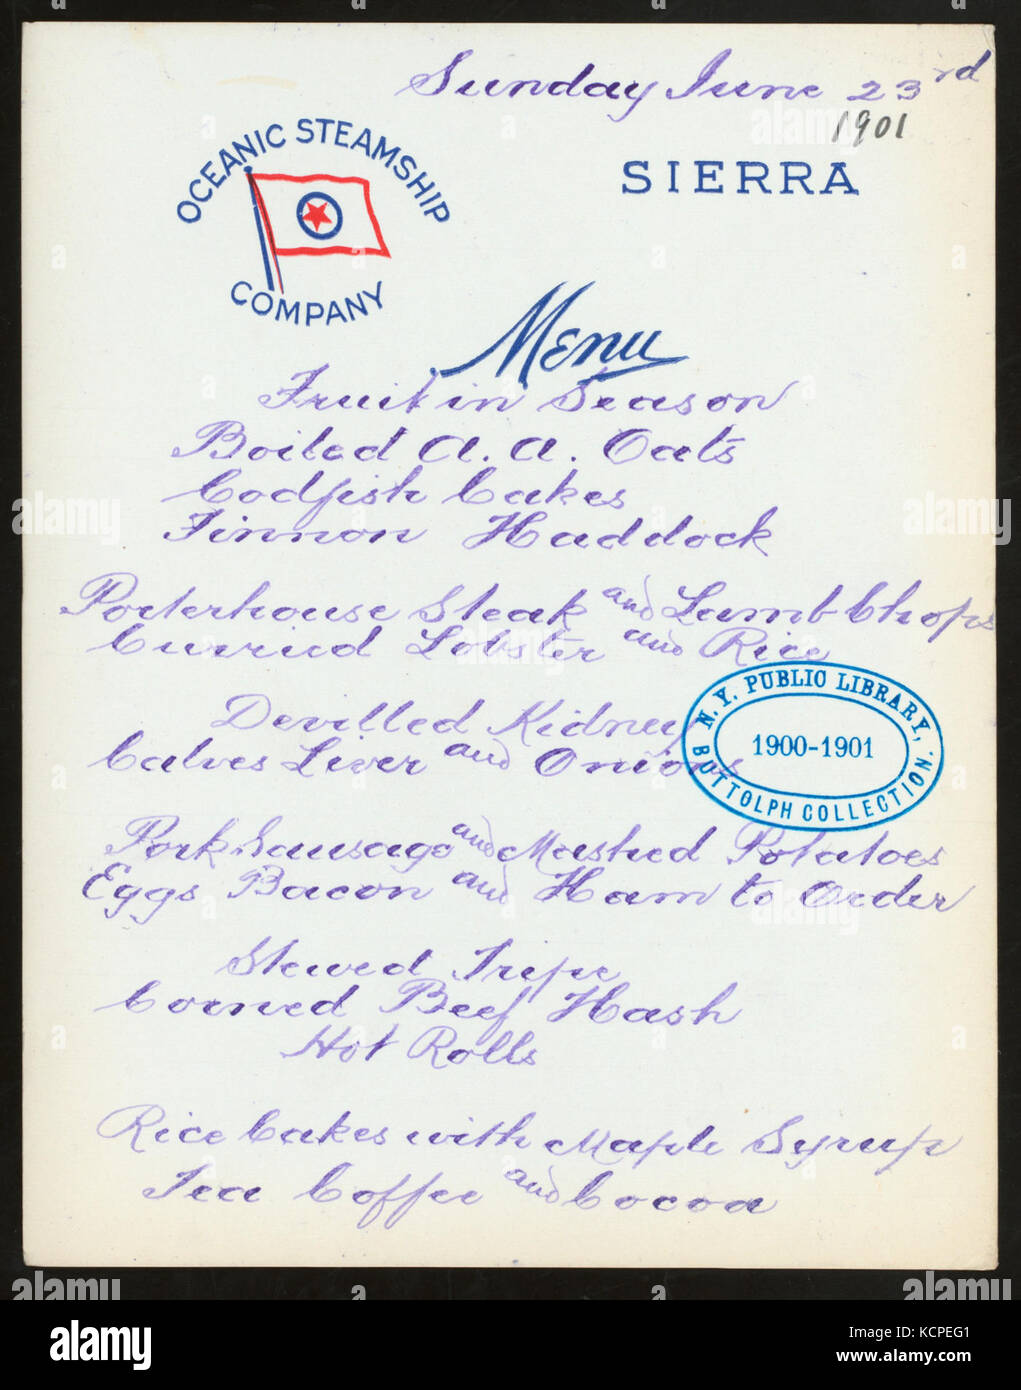 Sunday June 23rd
1901
OCEANIC STEAMSHIP
COMPANY
SIERRA
Menu
Fruit in Season
Boiled A. A. Oats
Codfish Cakes
Finnon Haddock
Porterhouse Steak and Lamb Chops
Curried Lobster and Rice
N.Y. PUBLIC LIBRARY,
1900-1901
BUTTOLPH COLLECTION.
Devilled Kidney
Calves Liver and Onions
Pork Sausage and Mashed Potatoes
Eggs Bacon and Ham to Order
Stewed Tripe
Corned Beef Hash
Hot Rolls
Rice Cakes with Maple Syrup
Tea Coffee and Cocoa
alamy
alamy
Image ID: KCPEG1
www.alamy.com